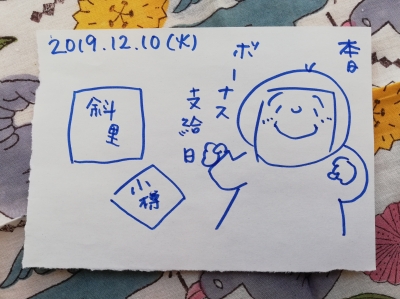 2019.12.10(火)
本日
ボーナス
支給日
斜里
小樽